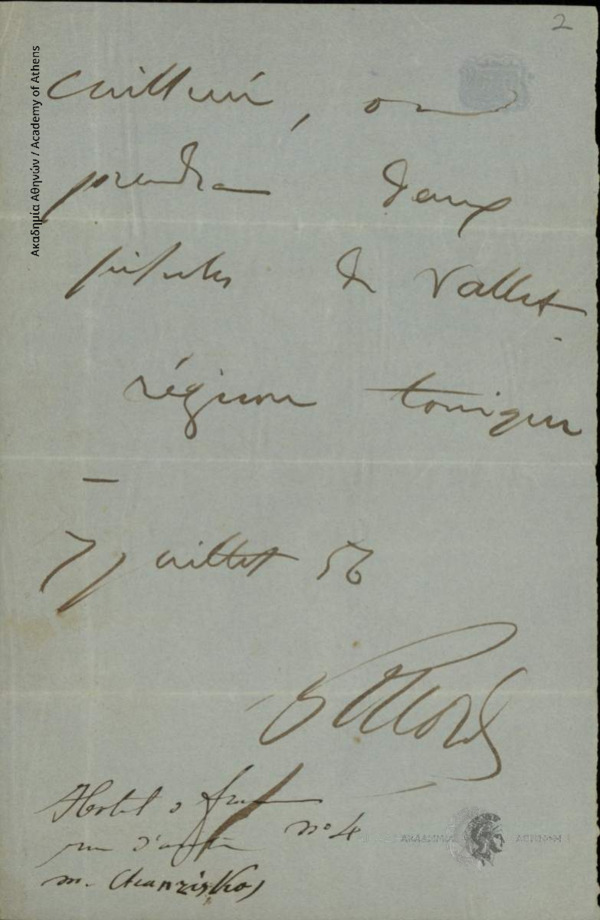 2
Ακαδημία Αθηνών / Academy of Athens
cuillerée, on
prendra deux
pilules de Vallet
régime tonique
—
7 juillet 56
Hotel
rue d' n° 4
m.